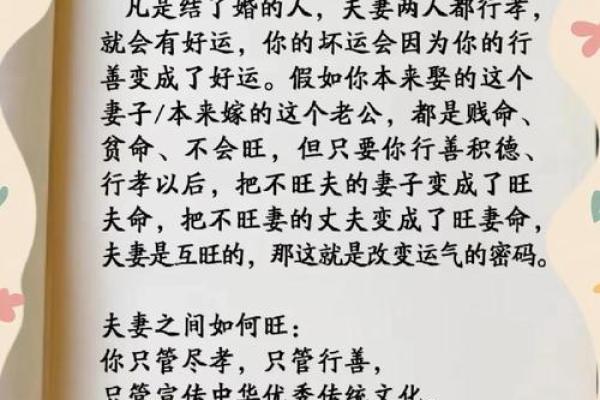 凡是结了婚的人，夫妻两人都行孝，
就会有好运，你的坏运会因为你的行
善变成了好运。假如你本来娶的这个
妻子/本来嫁的这个老公，都是贱命、
贫命、不会旺，但只要你行善积德、
行孝以后，把不旺夫的妻子变成了旺
夫命，把不旺妻的丈夫变成了旺妻命，
夫妻是互旺的，那这就是改变运气的密码。
夫妻之间如何旺：
你只管尽孝，只管行善，
只管宣传中华优秀传统文化，